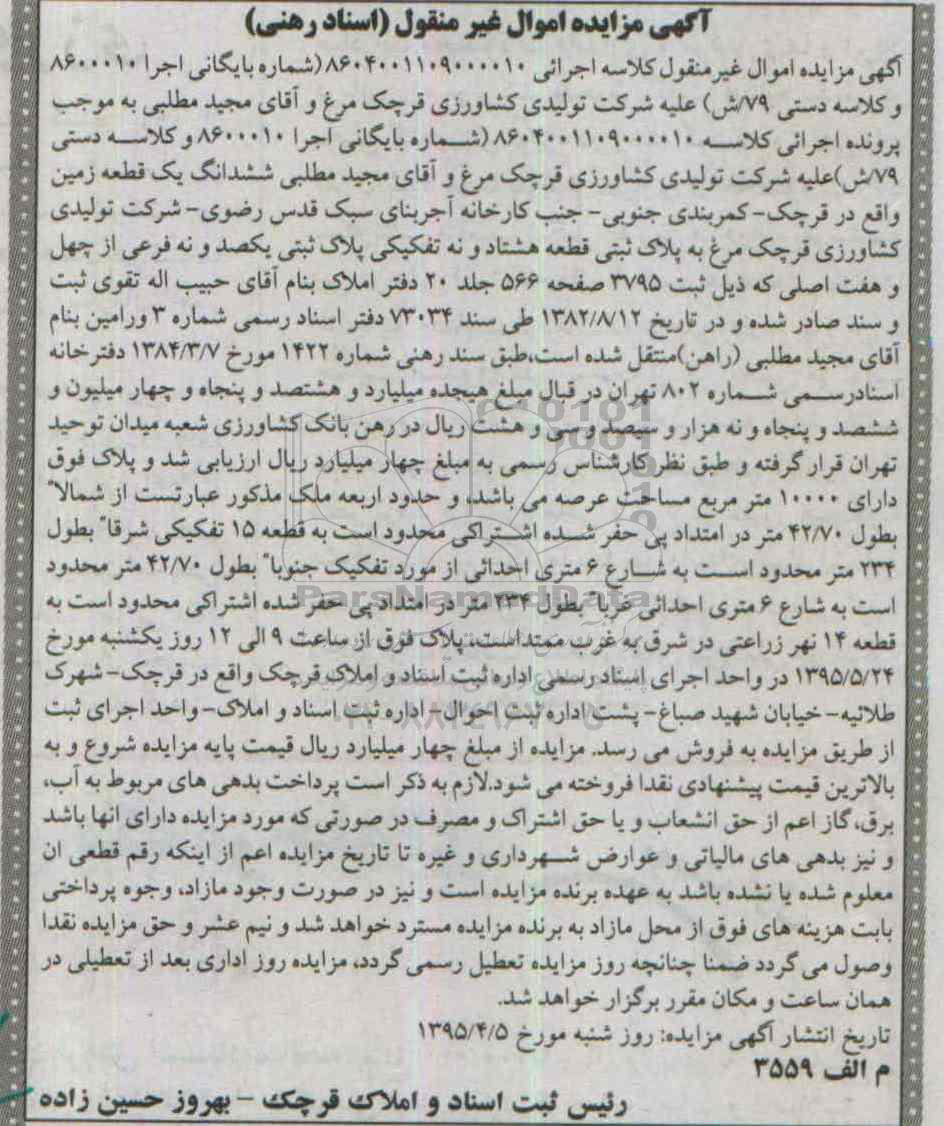 آگهی مزایده اموال غیر منقول (اسناد رهنی)
آگهی مزایده اموال غیرمنقول کلاسه اجرائی ۸۶۰۴۰۰۱۱۰۹۰۰۰۰۱۰ (شماره بایگانی اجرا ۸۶۰۰۰۱۰
و کلاسه دستی ۷۹/ش) علیه شرکت تولیدی کشاورزی قرچک مرغ و آقای مجید مطلبی به موجب
پرونده اجرائی کلاسه ۸۶۰۴۰۰۱۱۰۹۰۰۰۰۱۰ (شماره بایگانی اجرا ۸۶۰۰۰۱۰ و کلاسه دستی
۷۹/ش)علیه شرکت تولیدی کشاورزی قرچک مرغ و آقای مجید مطلبی ششدانگ یک قطعه زمین
واقع در قرچک- کمربندی جنوبی- جنب کارخانه آجربنای سبک قدس رضوی- شرکت تولیدی
کشاورزی قرچک مرغ به پلاک ثبتی قطعه هشتاد و نه تفکیکی پلاک ثبتی یکصد و نه فرعی از چهل
و هفت اصلی که ذیل ثبت ۳۷۹۵ صفحه ۵۶۶ جلد ۲۰ دفتر املاک بنام آقای حبیب اله تقوی ثبت
و سند صادر شده و در تاریخ ۱۳۸۲/۸/۱۲ طی سند ۷۳۰۳۴ دفتر اسناد رسمی شماره ۳ ورامین بنام
آقای مجید مطلبی (راهن)منتقل شده است،طبق سند رهنی شماره ۱۴۲۲ مورخ ۱۳۸۴/۳/۷ دفترخانه
اسنادرسمی شماره ۸۰۲ تهران در قبال مبلغ هیجده میلیارد و هشتصد و پنجاه و چهار میلیون و
ششصد و پنجاه و نه هزار و سیصد و سی و هشت ریال در رهن بانک کشاورزی شعبه میدان توحید
تهران قرار گرفته و طبق نظر کارشناس رسمی به مبلغ چهار میلیارد ریال ارزیابی شد و پلاک فوق
دارای ۱۰۰۰۰ متر مربع مساحت عرصه می باشد، و حدود اربعه ملک مذکور عبارتست از شمالا"
بطول ۴۲/۷۰ متر در امتداد پی حفر شده اشتراکی محدود است به قطعه ۱۵ تفکیکی شرقا" بطول
۲۳۴ متر محدود است به شارع ۶ متری احداثی از مورد تفکیک جنوبا" بطول ۴۲/۷۰ متر محدود
است به شارع ۶ متری احداثی غربا" بطول ۲۳۴ متر در امتداد پی حفر شده اشتراکی محدود است به
قطعه ۱۴ نهر زراعتی در شرق به غرب ممتداست، پلاک فوق از ساعت ۹ الی ۱۲ روز یکشنبه مورخ
۱۳۹۵/۵/۲۴ در واحد اجرای اسناد رسمی اداره ثبت اسناد و املاک قرچک واقع در قرچک- شهرک
طلائیه- خیابان شهید صباغ- پشت اداره ثبت احوال- اداره ثبت اسناد و املاک- واحد اجرای ثبت
از طریق مزایده به فروش می رسد. مزایده از مبلغ چهار میلیارد ریال قیمت پایه مزایده شروع و به
بالاترین قیمت پیشنهادی نقدا فروخته می شود.لازم به ذکر است پرداخت بدهی های مربوط به آب،
برق،گاز اعم از حق انشعاب و یا حق اشتراک و مصرف در صورتی که مورد مزایده دارای انها باشد
و نیز بدهی های مالیاتی و عوارض شهرداری و غیره تا تاریخ مزایده اعم از اینکه رقم قطعی ان
معلوم شده یا نشده باشد به عهده برنده مزایده است و نیز در صورت وجود مازاد، وجوه پرداختی
بابت هزینه های فوق از محل مازاد به برنده مزایده مسترد خواهد شد و نیم عشر و حق مزایده نقدا
وصول می گردد ضمنا چنانچه روز مزایده تعطیل رسمی گردد، مزایده روز اداری بعد از تعطیلی در
همان ساعت و مکان مقرر برگزار خواهد شد.
تاریخ انتشار آگهی مزایده: روز شنبه مورخ ۱۳۹۵/۴/۵
م الف ۳۵۵۹
رئیس ثبت اسناد و املاک قرچک - بهروز حسین زاده
ParsNamadData